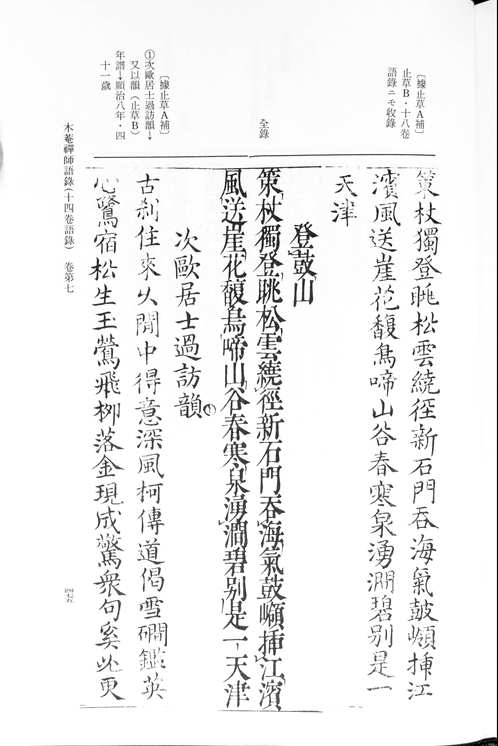 〔據止草A補〕
止草B・十八卷
語錄ニモ收錄
策杖獨登眺松雲繞徑新石門吞海氣鼓巓揷江
濱風送崖花馥鳥啼山谷春寒泉湧澗碧別是一
天津
全錄
登鼓山
策杖獨登眺松雲繞徑新石門吞海氣鼓巓揷江濱
風送崖花馥鳥啼山谷春寒泉湧澗碧別是一天津
次歐居士過訪韻①
古刹住來久閒中得意深風柯傳道偈雪磵鑑英
心鷺宿松生玉鶯飛柳落金現成驚衆句奚必更
〔據止草A補〕
①次歐居士過訪韻→
又以韻（止草B）
年譜→順治八年・四
十一歲
木菴禪師語錄（十四卷語錄） 卷第七
四七五